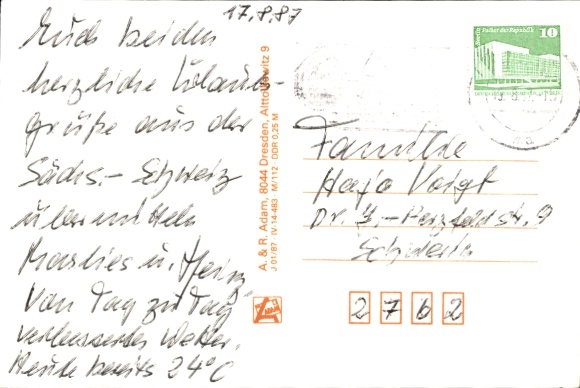 17.8.87
Euch beiden
herzliche Urlaubs-
grüße aus der
Sächs.- Schweiz
übermitteln
Marlies u. Heinz
Von Tag zu Tag
verbessertes Wetter.
Heute bereits 24°C
A. & R. Adam, 8044 Dresden, Altto 9
J 01/87 IV-14-483 M/112 DDR 0,25 M
Berlin Palast der Republik 10
Familie
Hajo Voigt
Dr. J.-Herzfeld str. 9
Schwerin
2762